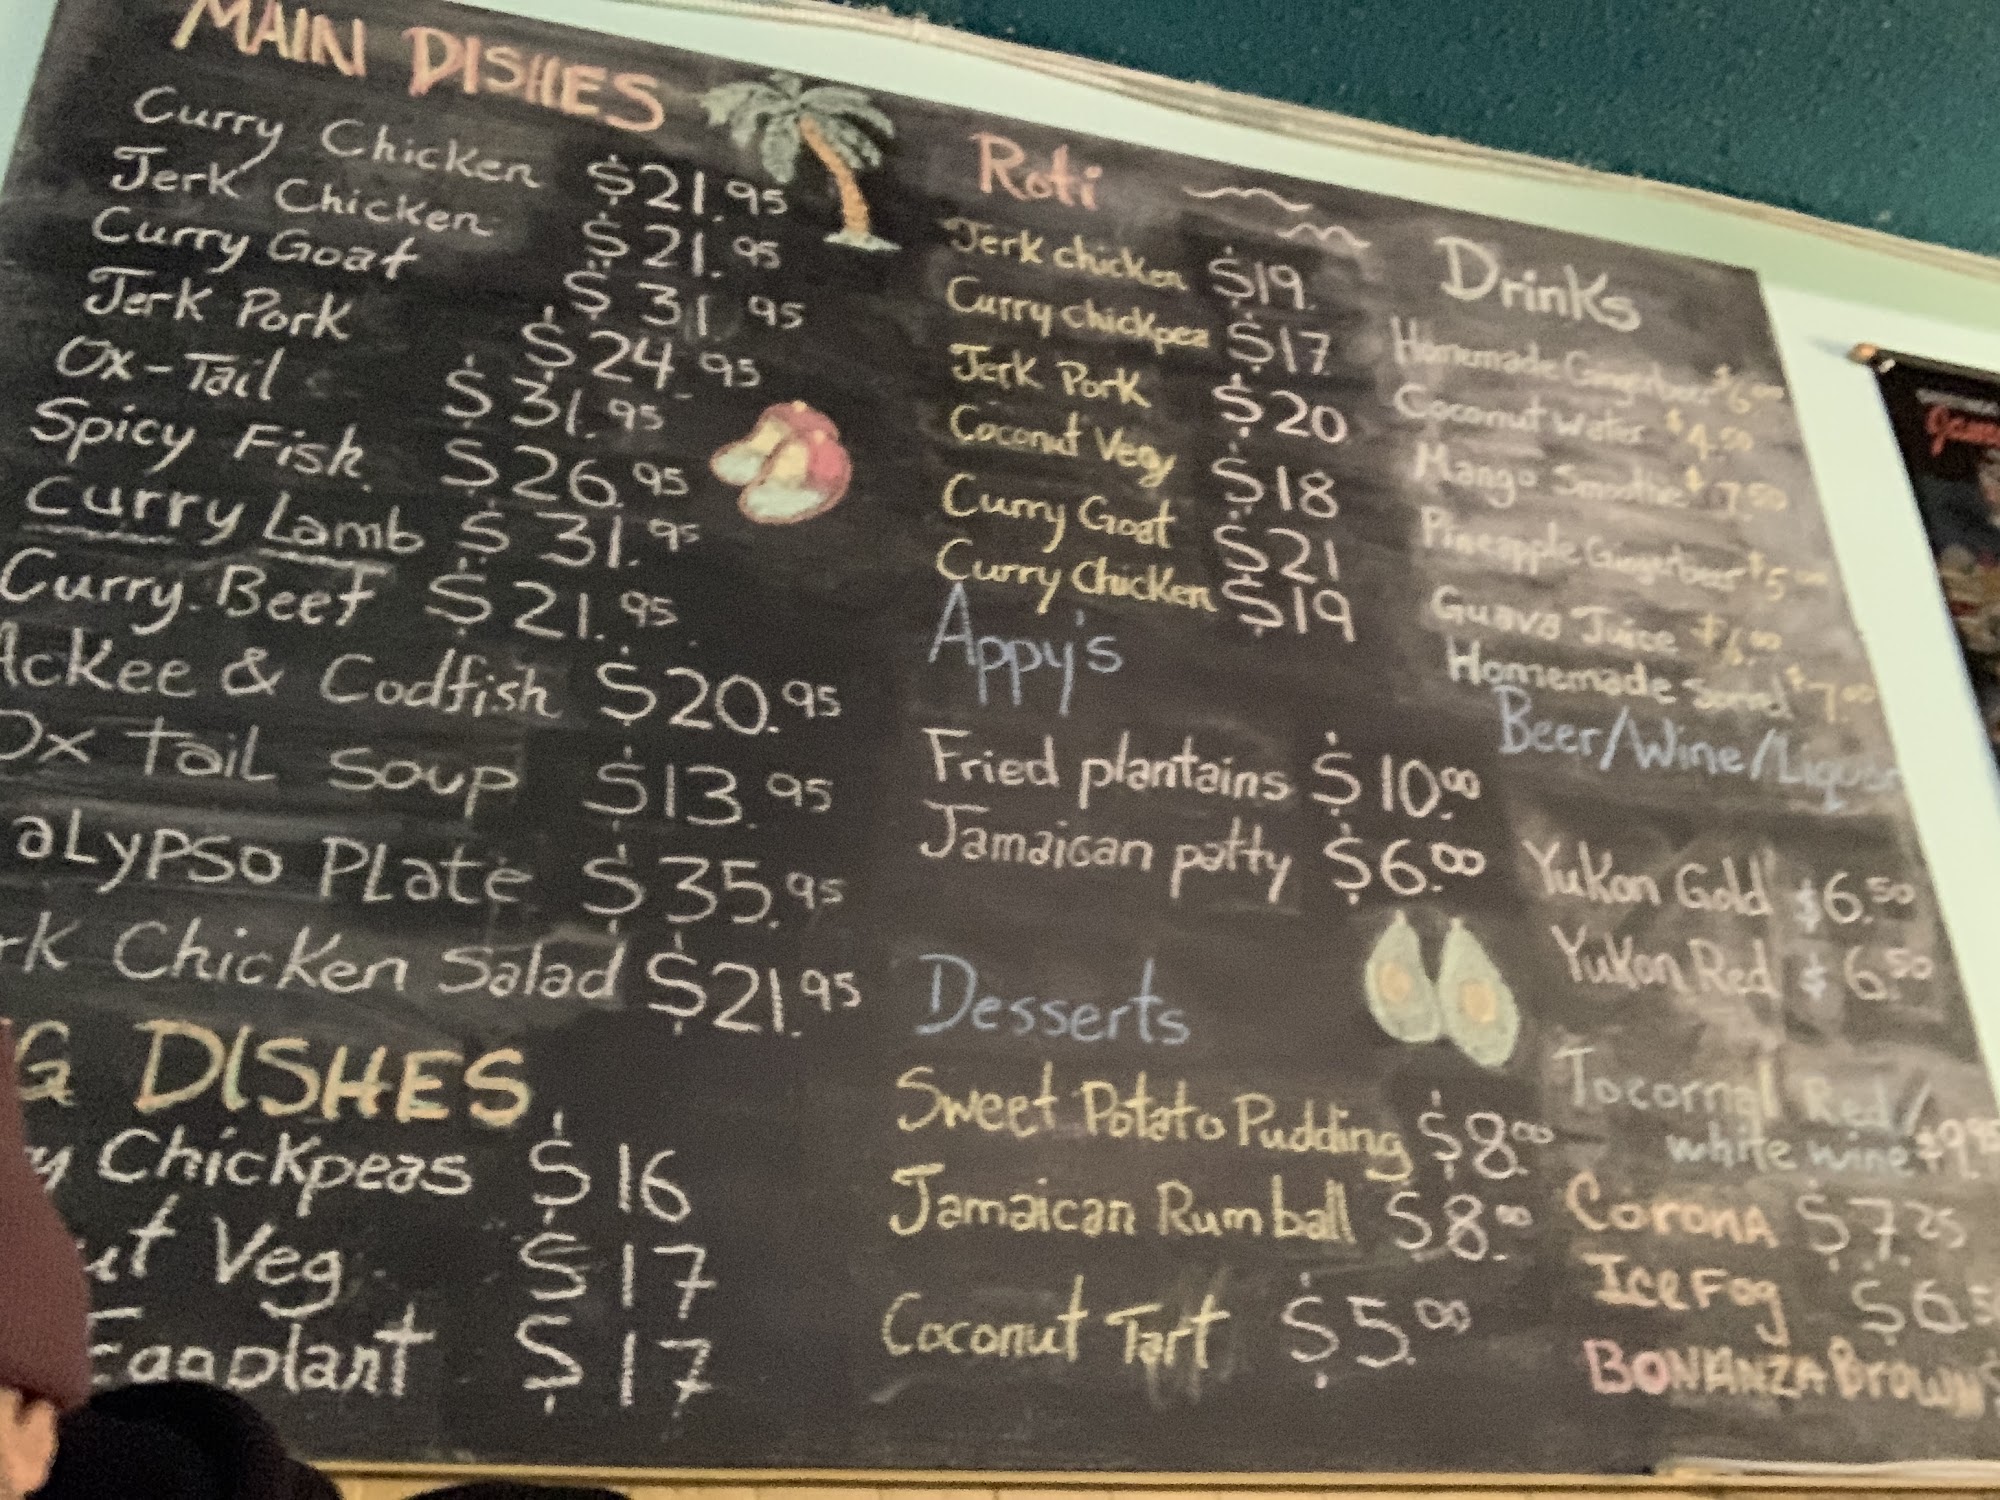 MAIN DISHES
Curry Chicken $21.95
Jerk Chicken $21.95
Curry Goat $31.95
Jerk Pork $24.95
Ox-Tail $31.95
Spicy Fish $26.95
Curry Lamb $31.95
Curry Beef $21.95
Ackee & Codfish $20.95
Ox Tail Soup $13.95
aLyPSo PLate $35.95
rk Chicken Salad $21.95
G DISHES
y Chickpeas $16
ut Veg $17
Eggplant $17
Roti
Jerk chicken $19.
Curry chickpea $17
Jerk Pork $20
Coconut Vegy $18
Curry Goat $21
Curry Chicken $19
Appy's
Fried plantains $10.00
Jamaican patty $6.00
Desserts
Sweet Potato Pudding $8.00
Jamaican Rum ball $8.00
Coconut Tart $5.00
Drinks
Homemade Gingerbeer $6.00
Coconut Water $4.50
Mango Smoothie $7.50
Pineapple Gingerbeer $5.00
Guava Juice $6.00
Homemade Sorrel $7.00
Beer/Wine/Liquor
Yukon Gold $6.50
Yukon Red $6.50
Tocornal Red/
white wine $9.95
Corona $7.25
Ice Fog $6.5
BONANZA Brown $